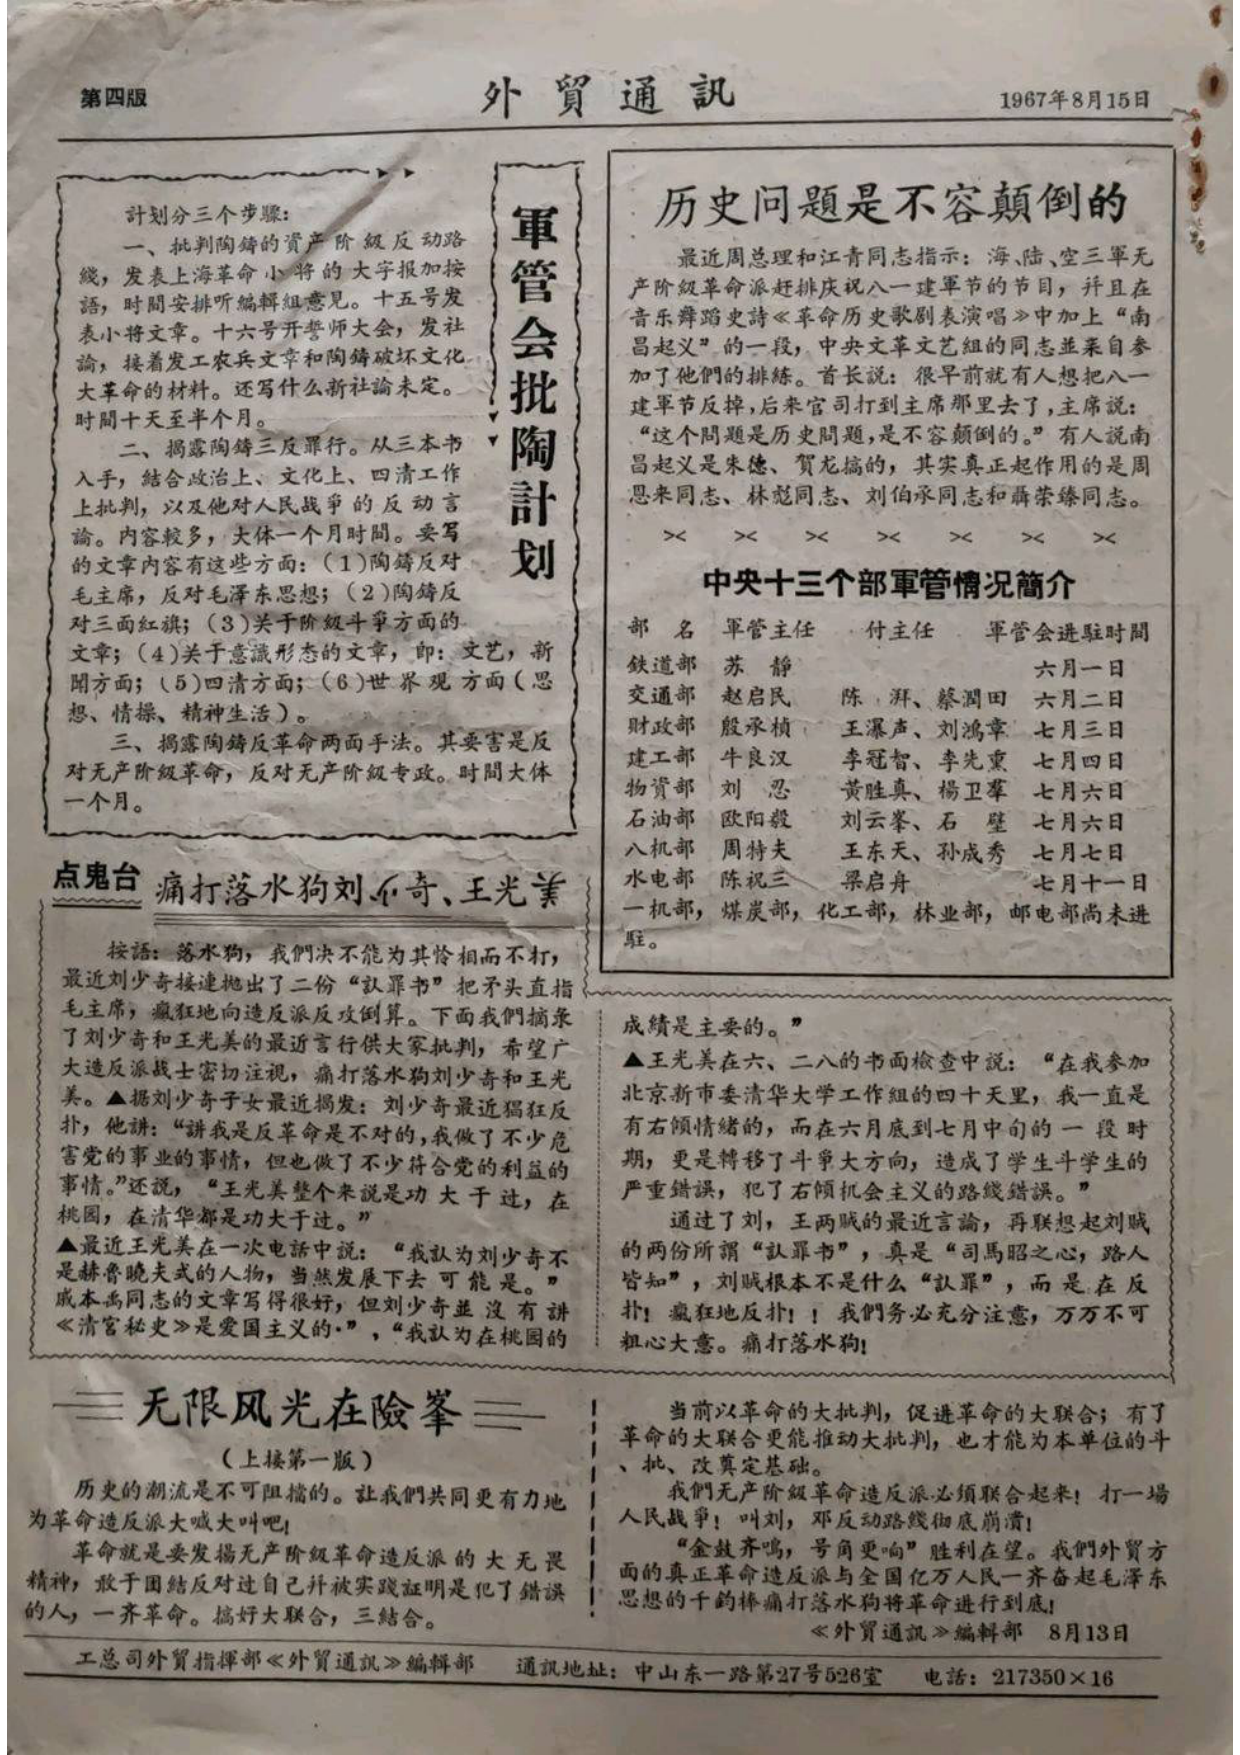 第四版
外貿通訊
1967年8月15日
軍管会批陶計划
計划分三个步驟：
一、批判陶鋳的資产阶級反动路
綫，发表上海革命小将的大字报加按
語，时間安排听編輯組意見。十五号发
表小将文章。十六号开誓师大会，发社
論，接着发工农兵文章和陶鋳破坏文化
大革命的材料。还写什么新社論未定。
时間十天至半个月。
二、揭露陶鋳三反罪行。从三本书
入手，結合政治上、文化上、四清工作
上批判，以及他对人民战爭的反动言
論。内容較多，大体一个月时間。要写
的文章内容有这些方面：（1）陶鋳反对
毛主席，反对毛澤东思想；（2）陶鋳反
对三面紅旗；（3）关于阶級斗爭方面的
文章；（4）关于意識形态的文章，即：文艺，新
聞方面；（5）四清方面；（6）世界观方面（思
想、情操、精神生活）。
三、揭露陶鋳反革命两面手法。其要害是反
对无产阶級革命，反对无产阶級专政。时間大体
一个月。
历史问題是不容顛倒的
最近周总理和江青同志指示：海、陆、空三軍无
产阶級革命派赶排庆祝八一建軍节的节目，幷且在
音乐舞蹈史詩≪革命历史歌剧表演唱≫中加上“南
昌起义”的一段，中央文革文艺組的同志並亲自参
加了他們的排练。首长說：很早前就有人想把八一
建軍节反掉，后来官司打到主席那里去了，主席說：
“这个問題是历史問題，是不容顛倒的。”有人說南
昌起义是朱德、賀龙搞的，其实真正起作用的是周
恩来同志、林彪同志、刘伯承同志和聶荣臻同志。
中央十三个部軍管情况簡介
部　名　軍管主任　付主任　軍管会进駐时間
鉄道部　苏　静　六月一日
交通部　赵启民　陈　湃、蔡潤田　六月二日
財政部　殷承楨　王瀑声、刘鴻章　七月三日
建工部　牛良汉　李冠智、李先熏　七月四日
物資部　刘　忍　黄胜真、楊卫羣　七月六日
石油部　欧阳毅　刘云峯、石　壁　七月六日
八机部　周特夫　王东天、孙成秀　七月七日
水电部　陈祝三　梁启舟　七月十一日
一机部，煤炭部，化工部，林业部，邮电部尚未进
駐。
点鬼台
痛打落水狗刘少奇、王光美
按語：落水狗，我們决不能为其怜相而不打，
最近刘少奇接連抛出了二份“認罪书”把矛头直指
毛主席，瘋狂地向造反派反攻倒算。下面我們摘录
了刘少奇和王光美的最近言行供大家批判，希望广
大造反派战士密切注視，痛打落水狗刘少奇和王光
美。▲据刘少奇子女最近揭发：刘少奇最近猖狂反
扑，他講：“講我是反革命是不对的，我做了不少危
害党的事业的事情，但也做了不少符合党的利益的
事情。”还說，“王光美整个来說是功大于过，在
桃园，在清华都是功大于过。”
▲最近王光美在一次电話中說：“我認为刘少奇不
是赫鲁曉夫式的人物，当然发展下去可能是。”
戚本禹同志的文章写得很好，但刘少奇並沒有講
≪清宫秘史≫是爱国主义的·”，“我認为在桃园的
成績是主要的。”
▲王光美在六、二八的书面檢查中說：“在我参加
北京新市委清华大学工作組的四十天里，我一直是
有右傾情緒的，而在六月底到七月中旬的一段时
期，更是轉移了斗爭大方向，造成了学生斗学生的
严重錯誤，犯了右傾机会主义的路綫錯誤。”
通过了刘，王两贼的最近言論，再联想起刘贼
的两份所謂“認罪书”，真是“司馬昭之心，路人
皆知”，刘贼根本不是什么“認罪”，而是在反
扑！瘋狂地反扑！！我們务必充分注意，万万不可
粗心大意。痛打落水狗！
无限风光在險峯
（上接第一版）
历史的潮流是不可阻擋的。讓我們共同更有力地
为革命造反派大喊大叫吧！
革命就是要发揚无产阶級革命造反派的大无畏
精神，敢于团結反对过自己幷被实践証明是犯了錯誤
的人，一齐革命。搞好大联合，三結合。
当前以革命的大批判，促进革命的大联合；有了
革命的大联合更能推动大批判，也才能为本单位的斗
、批、改奠定基础。
我們无产阶級革命造反派必須联合起来！打一場
人民战爭！叫刘，邓反动路綫彻底崩潰！
“金鼓齐鳴，号角更响”胜利在望。我們外貿方
面的真正革命造反派与全国亿万人民一齐奋起毛澤东
思想的千鈞棒痛打落水狗将革命进行到底！
≪外貿通訊≫編輯部　8月13日
工总司外貿指揮部≪外貿通訊≫編輯部　通訊地址：中山东一路第27号526室　电話：217350×16